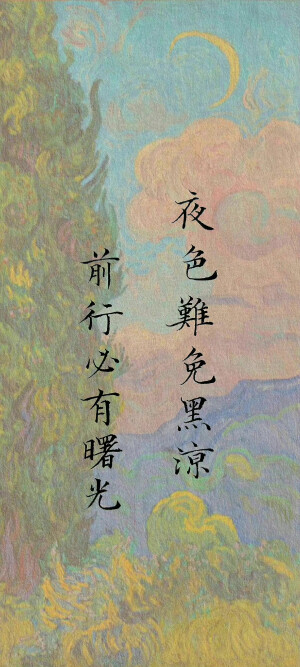 夜色難免黑涼
前行必有曙光